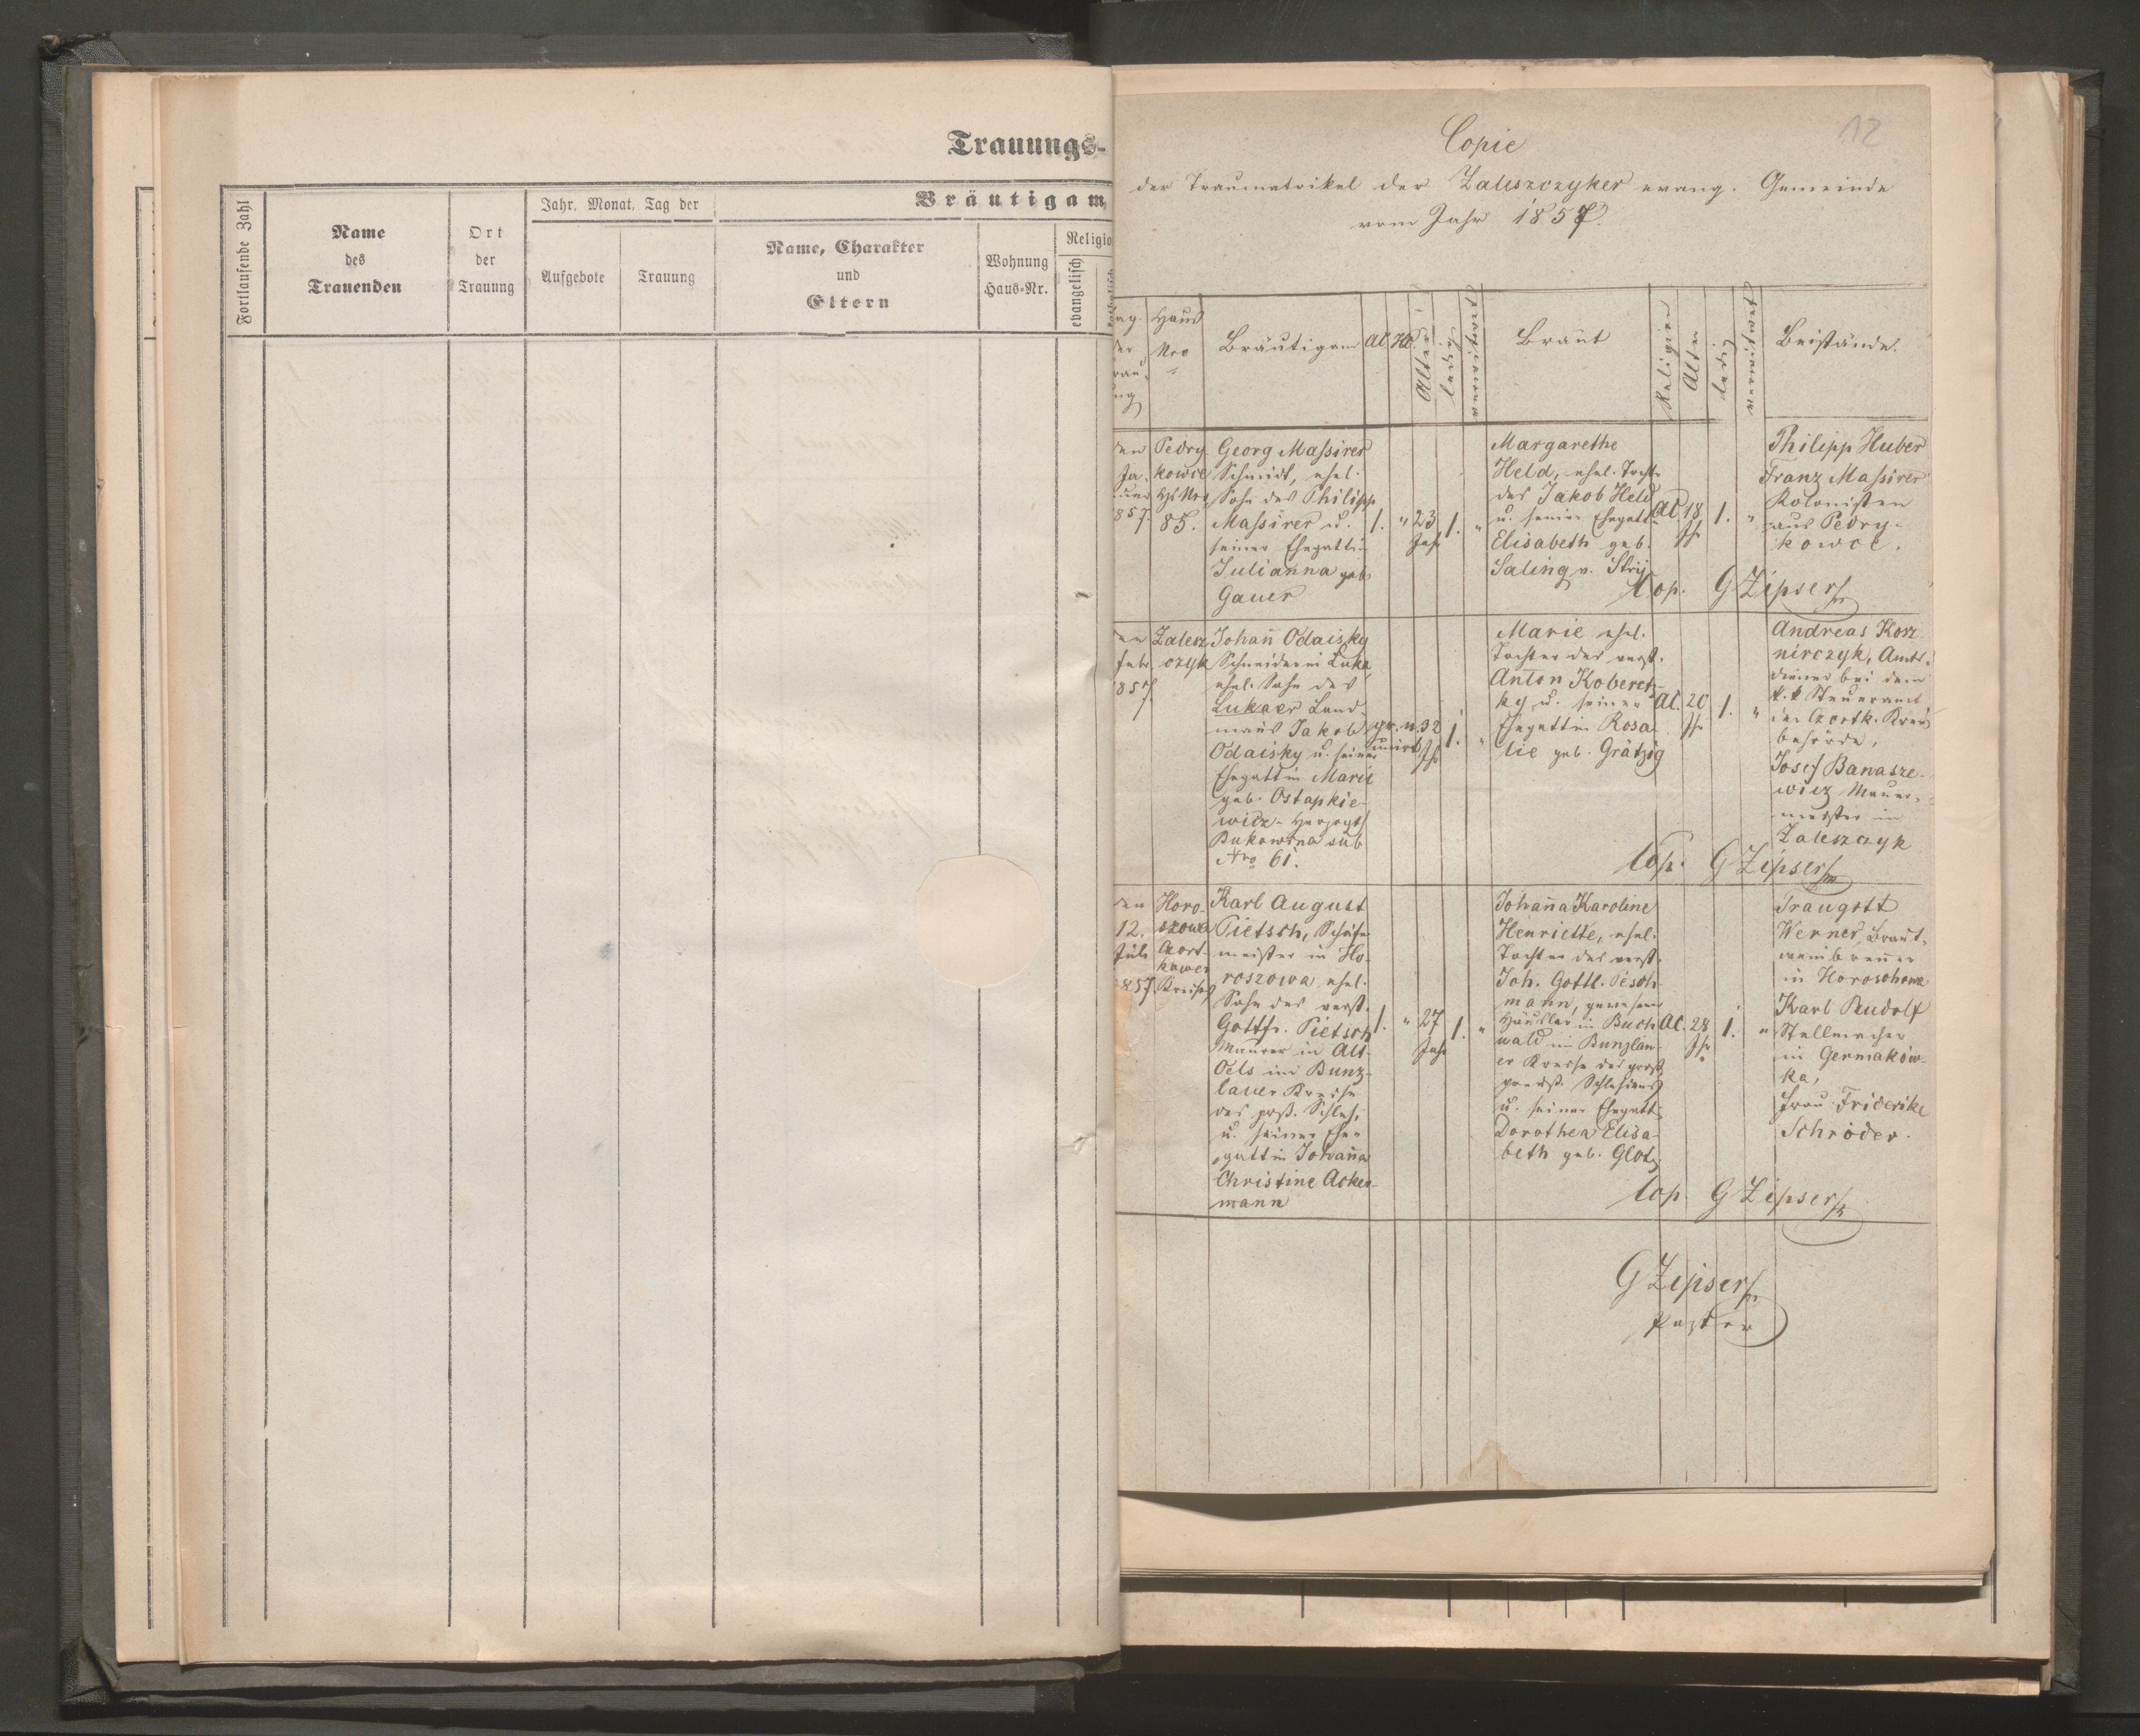 Trauungs-
Fortlaufende Zahl
Name
des
Trauenden
Ort
der
Trauung
Jahr, Monat, Tag der
Aufgebote
Trauung
Bräutigam,
Name, Charakter
und
Eltern
Wohnung
Haus-Nr.
Religio
evangelisch
12
Copie
der Traumatrikel der Zaleszczyker evang. Gemeinde
vom Jahr 1857.
ag.
der
rau-
ng
Haus
Nro
Bräutigam
AC
HC
Alter
ledig
verwitwet
Braut
Religion
Alter
ledig
verwitwet
Beistände.
den
Ja-
nuar
857.
Pedry-
kowce
Hs Nro
85.
Georg Massirer
Schmidt, ehel.
Sohn des Philipp
Massirer u.
seiner Ehegattin
Julianna geb.
Gauer
1.
"
23
Jahr
1.
"
Margarethe
Held, ehel. Tocht.
des Jakob Held
u. seiner Ehegatt.
Elisabeth geb.
Saling v. Stryj
AC
18
Jhr
1.
"
Philipp Huber
Franz Massirer
Kolonisten
aus Pedry-
kowce.
Cop. G Zipser
den
Febr.
857.
Zalesz
czyk
Johan̄ Odaisky
Schneider in Luka,
ehel. Sohn des
Lukaer Land-
man̄s Jakob
Odaisky u. seiner
Ehegattin Marie
geb. Ostapkie-
wicz - Herzogth
Bukowina sub
Nro 61.
gr. n.
unirt
32
Jhr
1.
"
Marie ehel.
Tochter des verst.
Anton Koberetz-
ky u. seiner
Ehegattin Rosa-
lie geb. Grätzig
AC.
20
Jhr
1.
"
Andreas Korz
nirczyk, Amts-
diener bei dem
k. k Steueramt
der Czortk. Kreis
behörde,
Josef Banasze-
wicz Mauer-
meister in
Zaleszczyk
Cop. G Zipser
den
12.
Juli
857.
Horo-
szowa
Czort-
kower
Kreises
Karl August
Pietsch, Schäfer
meister in Ho-
roszowa, ehel.
Sohn des verst.
Gottfr. Pietsch
Maurer in Alt-
Oels im Bunz-
lauer Kreise
des prß. Schles.
u. seiner Ehe-
gattin Johan̄a
Christine Acker-
mann
1.
"
27
Jahr
1.
"
Johan̄a Karoline
Henriette, ehel.
Tochter des verst.
Joh. Gottl. Pesch-
mann, gewesener
Häusler in Buch
wald im Bunzlau-
er Kreise des
preuß. Schlesiens
u. seiner Ehegatt.
Dorothea Elisa-
beth geb. Glotz
AC.
28
Jhr
1.
"
Traugott
Werner, Brant-
weinbren̄er
in Horoschowa
Karl Rudolf
Stellmacher
in Germaków-
ka,
Frau Friderike
Schröder.
Cop. G Zipser
G Zipser
Pastor